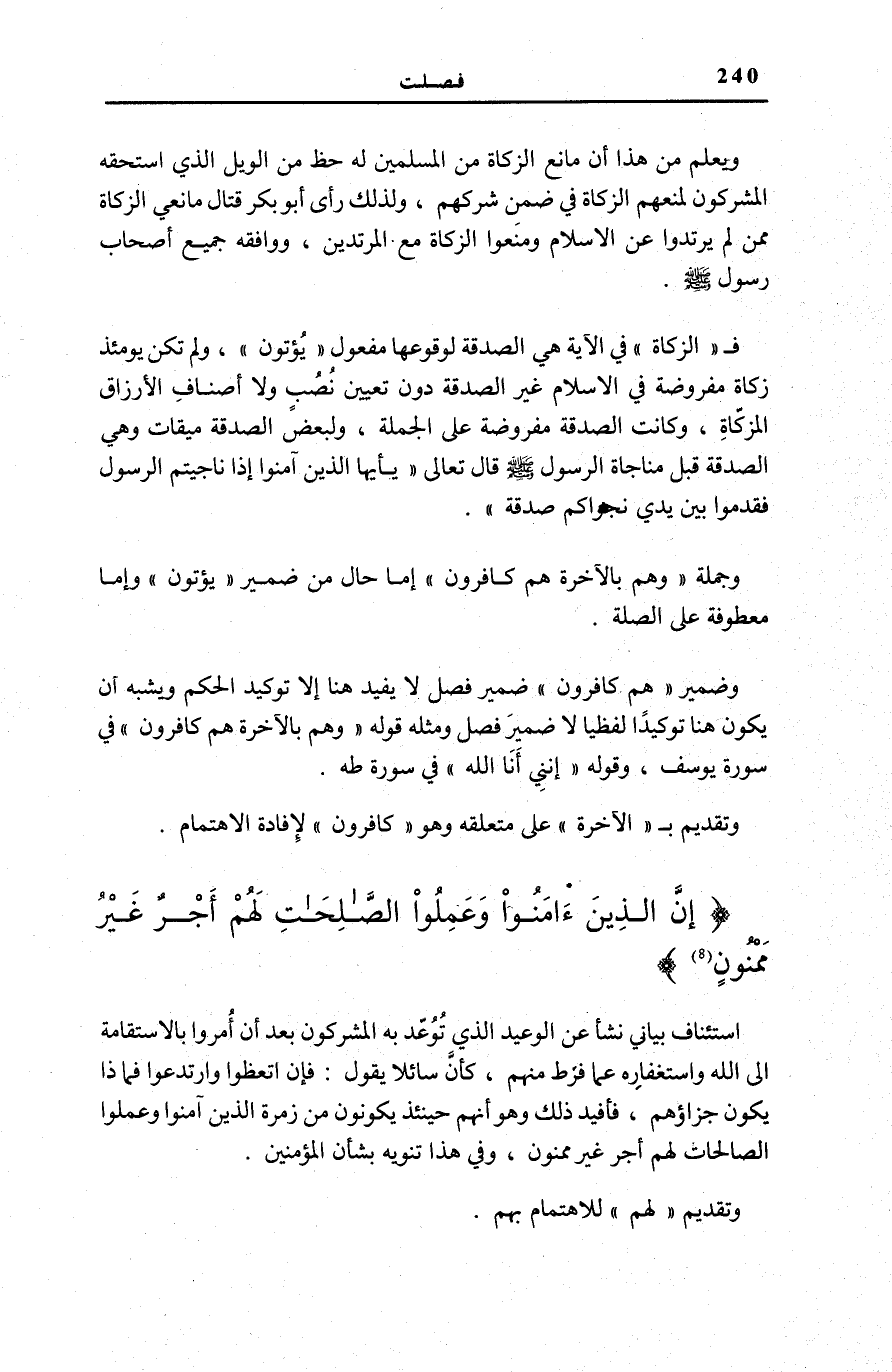 240
فصلت
ويعلم من هذا أن مانع الزكاة من المسلمين له حظ من الويل الذي استحقه
المشركون لمنعهم الزكاة في ضمن شركهم ، ولذلك رأى أبو بكر قتال مانعي الزكاة
ممن لم يرتدوا عن الاسلام ومنَعوا الزكاة مع المرتدين ، ووافقه جميع أصحاب
رسول ﷺ .
فـ « الزكاة » في الآية هي الصدقة لوقوعها مفعول « يُؤتون » ، ولم تكن يومئذ
زكاة مفروضة في الاسلام غير الصدقة دون تعيين نُصُبٍ ولا أصنافِ الأرزاق
المزكّاةِ ، وكانت الصدقة مفروضة على الجملة ، ولبعض الصدقة ميقات وهي
الصدقة قبل مناجاة الرسول ﷺ قال تعالى « يـأيها الذين آمنوا إذا ناجيتم الرسول
فقدموا بين يدي نجواكم صدقة » .
وجملة « وهم بالآخرة هم كافرون » إما حال من ضمير « يؤتون » وإما
معطوفة على الصلة .
وضمير « هم كافرون » ضمير فصل لا يفيد هنا إلا توكيد الحكم ويشبه أن
يكون هنا توكيدًا لفظيا لا ضميرَ فصل ومثله قوله « وهم بالآخرة هم كافرون » في
سورة يوسف ، وقوله « إنني أَنَا الله » في سورة طه .
وتقديم بـ « الآخرة » على متعلقه وهو « كافرون » لإفادة الاهتمام .
﴿ إِنَّ الذِينَ ءَامَنُواْ وَعَمِلُواْ الصَّـٰلِحَـٰتِ لَهُمْ أَجْرٌ غَيْرُ
مَمْنُونٍ(8) ﴾
استئناف بياني نشأ عن الوعيد الذي تُوُعّد به المشركون بعد أن أُمروا بالاستقامة
الى الله واستغفاره عما فرَط منهم ، كأنَّ سائلا يقول : فإن اتعظوا وارتدعوا فما ذا
يكون جزاؤهم ، فأفيد ذلك وهو أنهم حينئذ يكونون من زمرة الذين آمنوا وعملوا
الصالحات لهم أجر غير ممنون ، وفي هذا تنويه بشأن المؤمنين .
وتقديم « لهم » للاهتمام بهم .